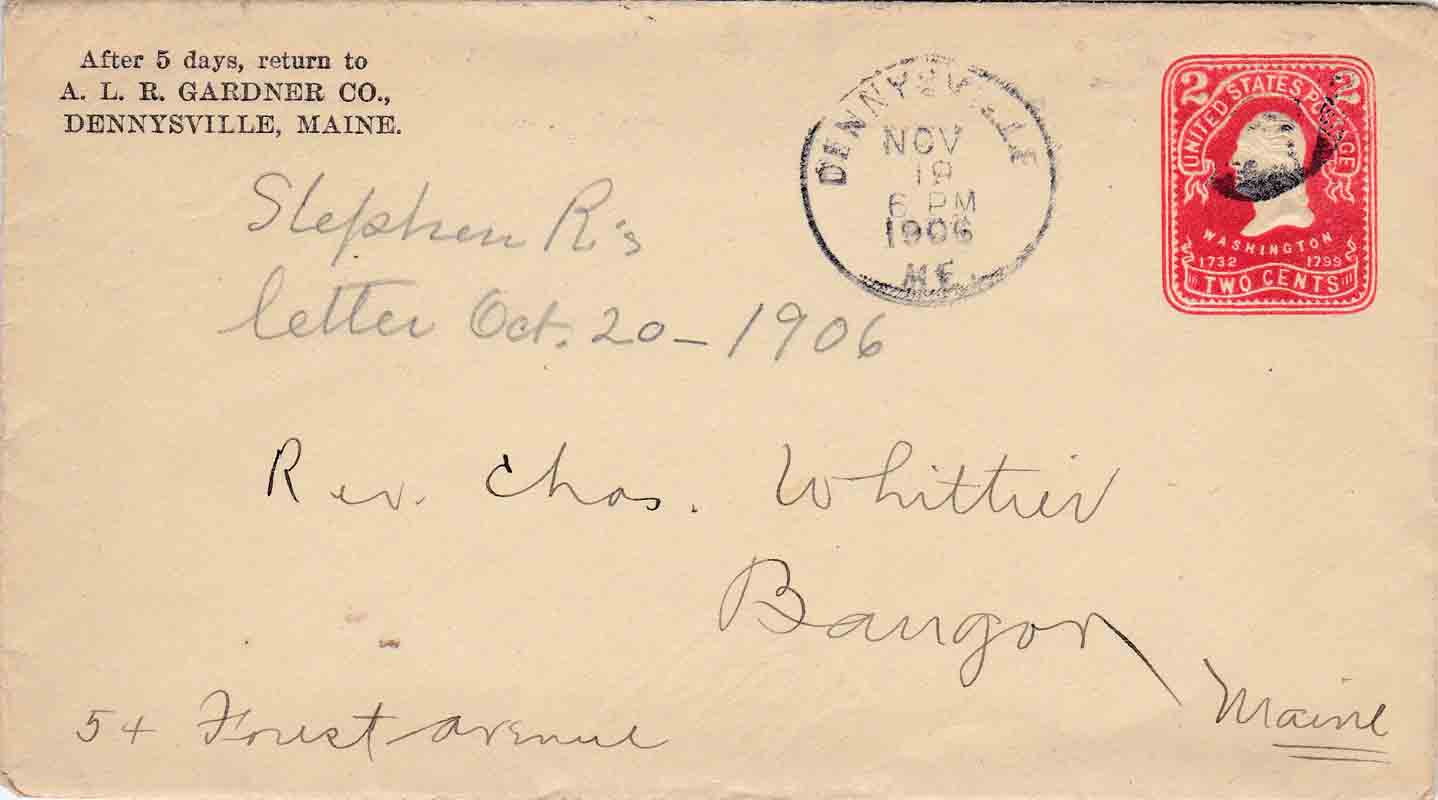 After 5 days, return to
A. L. R. GARDNER CO.,
DENNYSVILLE, MAINE.
DENNYSVILLE
NOV
19
6 PM
1906
ME.
2 2
UNITED STATES POSTAGE
WASHINGTON
1732 1799
TWO CENTS
Stephen R's
letter Oct. 20 - 1906
Rev. Chas. Whittier
Bangor
Maine
54 Forest Avenue